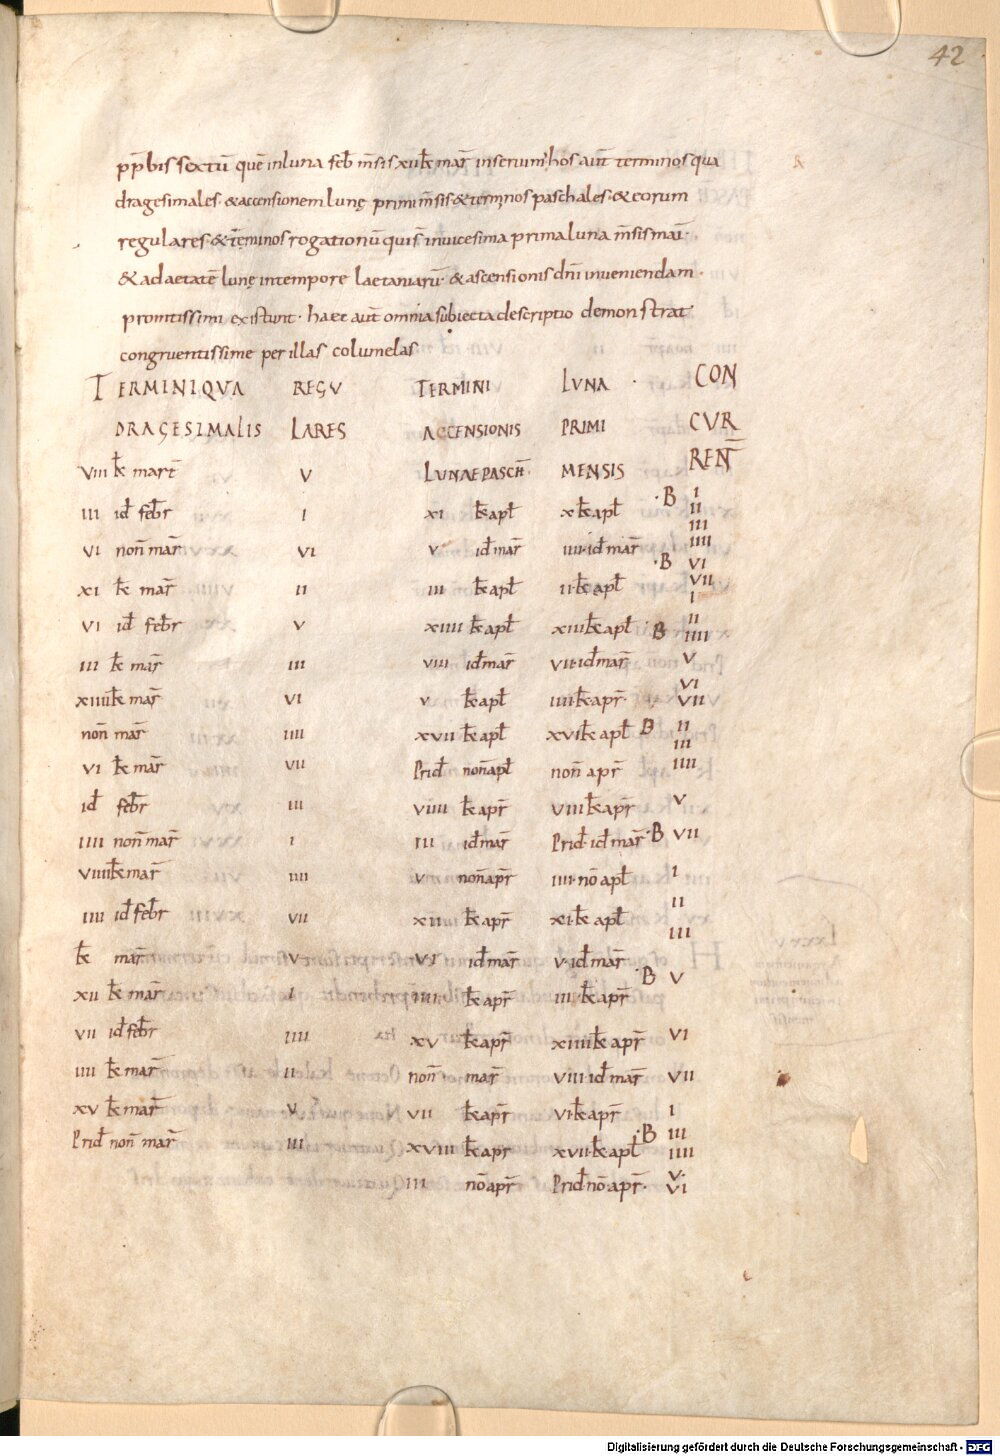 42
pp̄bis sextū quē in luna feb̄ m̄sis xii kł mar̄ inserum̄ hos aut̄ terminos qua
dragesimales · & accensionem lunę primi m̄sis & term̄nos paschales · & eorum
regulares · & t̄eminos rogationū qui s̄ in vicesima prima luna m̄sis mai ·
& ad aetatē lunę in tempore laetaniarū · & ascensionis dn̄i inveniendam ·
promtissimi existunt · haec aut̄ omnia subiecta descriptio demonstrat
congruentissime per illas columelas
TERMINI QVA REGV TERMINI LVNA · CON
DRAGESIMALIS LARES ACCENSIONIS PRIMI CVR
VIII kł mart̄ V LVNAE PASCH̄ · MENSIS REN̄T
III id feb̄r I XI kł apł X kł apł · B I II III
VI non̄ mar̄ VI V id mar̄ IIII · id mar̄ IIII
XI kł mar̄ II III kł apł II · kł apł · B VI VII I
VI id feb̄r V XIIII kł apł XIII kł apł · B II IIII
III kł mar̄ III VIII id mar̄ VII · id mar̄ V
XIIII kł mar̄ VI V kł apł IIII · kł apr̄ · VI VII
non̄ mar̄ IIII XVII kł apł XVI kł apł B II III
VI kł mar̄ VII Prid non̄ apł non̄ apr̄ IIII
id feb̄r III VIIII kł apr̄ VIII kł apr̄ V
IIII non̄ mar̄ I III id mar̄ Prid · id mar̄ · B VII
VIIII kł mar̄ IIII V non̄ apr̄ IIII · nō apł I
IIII id feb̄r VII XII kł apr̄ XI · kł apł II III
kł mar̄ V VI id mar̄ V · id mar̄
XII kł mar̄ I IIII kł apr̄ III · kł apr̄ · B V
VII id feb̄r IIII XV kł apr̄ XIIII kł apr̄ VI
IIII kł mar̄ II non̄ mar̄ VIII id mar̄ VII
XV kł mar̄ V VII kł apr̄ VI · kł apr̄ I
Prid non̄ mar̄ III XVIII kł apr XVII · kł apł · B III IIII
III nō apr̄ Prid nō apr̄ · V · VI
Digitalisierung gefördert durch die Deutsche Forschungsgemeinschaft - DFG